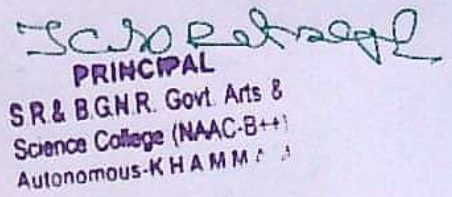 PRINCIPAL
S.R & B.G.N.R. Govt. Arts &
Science College (NAAC-B++)
Autonomous-KHAMM